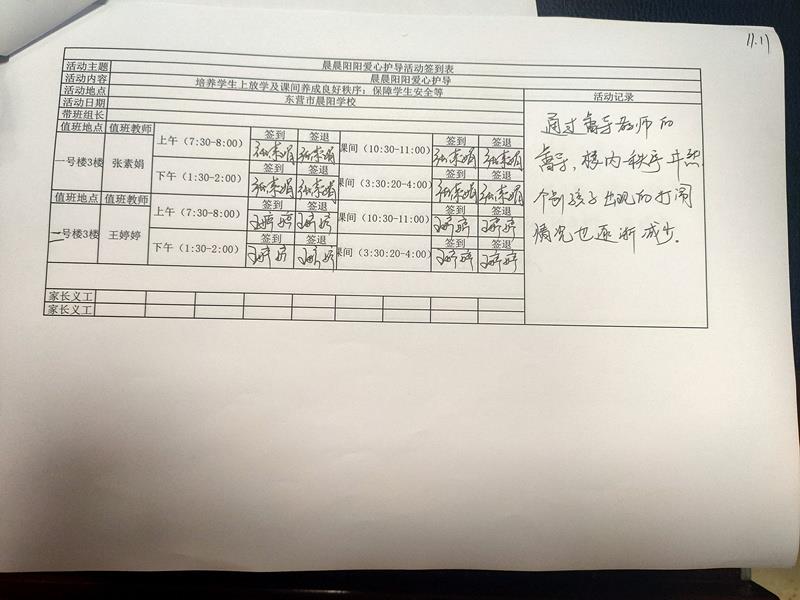 11.11
晨晨阳阳爱心护导活动签到表
活动主题 晨晨阳阳爱心护导
活动内容 培养学生上放学及课间养成良好秩序；保障学生安全等
活动地点 东营市晨阳学校
活动日期
带班组长
活动记录
值班地点 值班教师 上午（7:30-8:00） 签到 签退 课间（10:30-11:00） 签到 签退
张素娟 张素娟 张素娟 张素娟
一号楼3楼 张素娟
下午（1:30-2:00） 签到 签退 （3:30:20-4:00） 签到 签退
张素娟 张素娟 张素娟 张素娟
值班地点 值班教师 上午（7:30-8:00） 签到 签退 课间（10:30-11:00） 签到 签退
王婷婷 王婷婷 王婷婷 王婷婷
二号楼3楼 王婷婷
下午（1:30-2:00） 签到 签退 （3:30:20-4:00） 签到 签退
王婷婷 王婷婷 王婷婷 王婷婷
家长义工
家长义工
通过督导教师的
督导，楼内秩序井然
个别孩子出现的打闹
情况也逐渐减少.